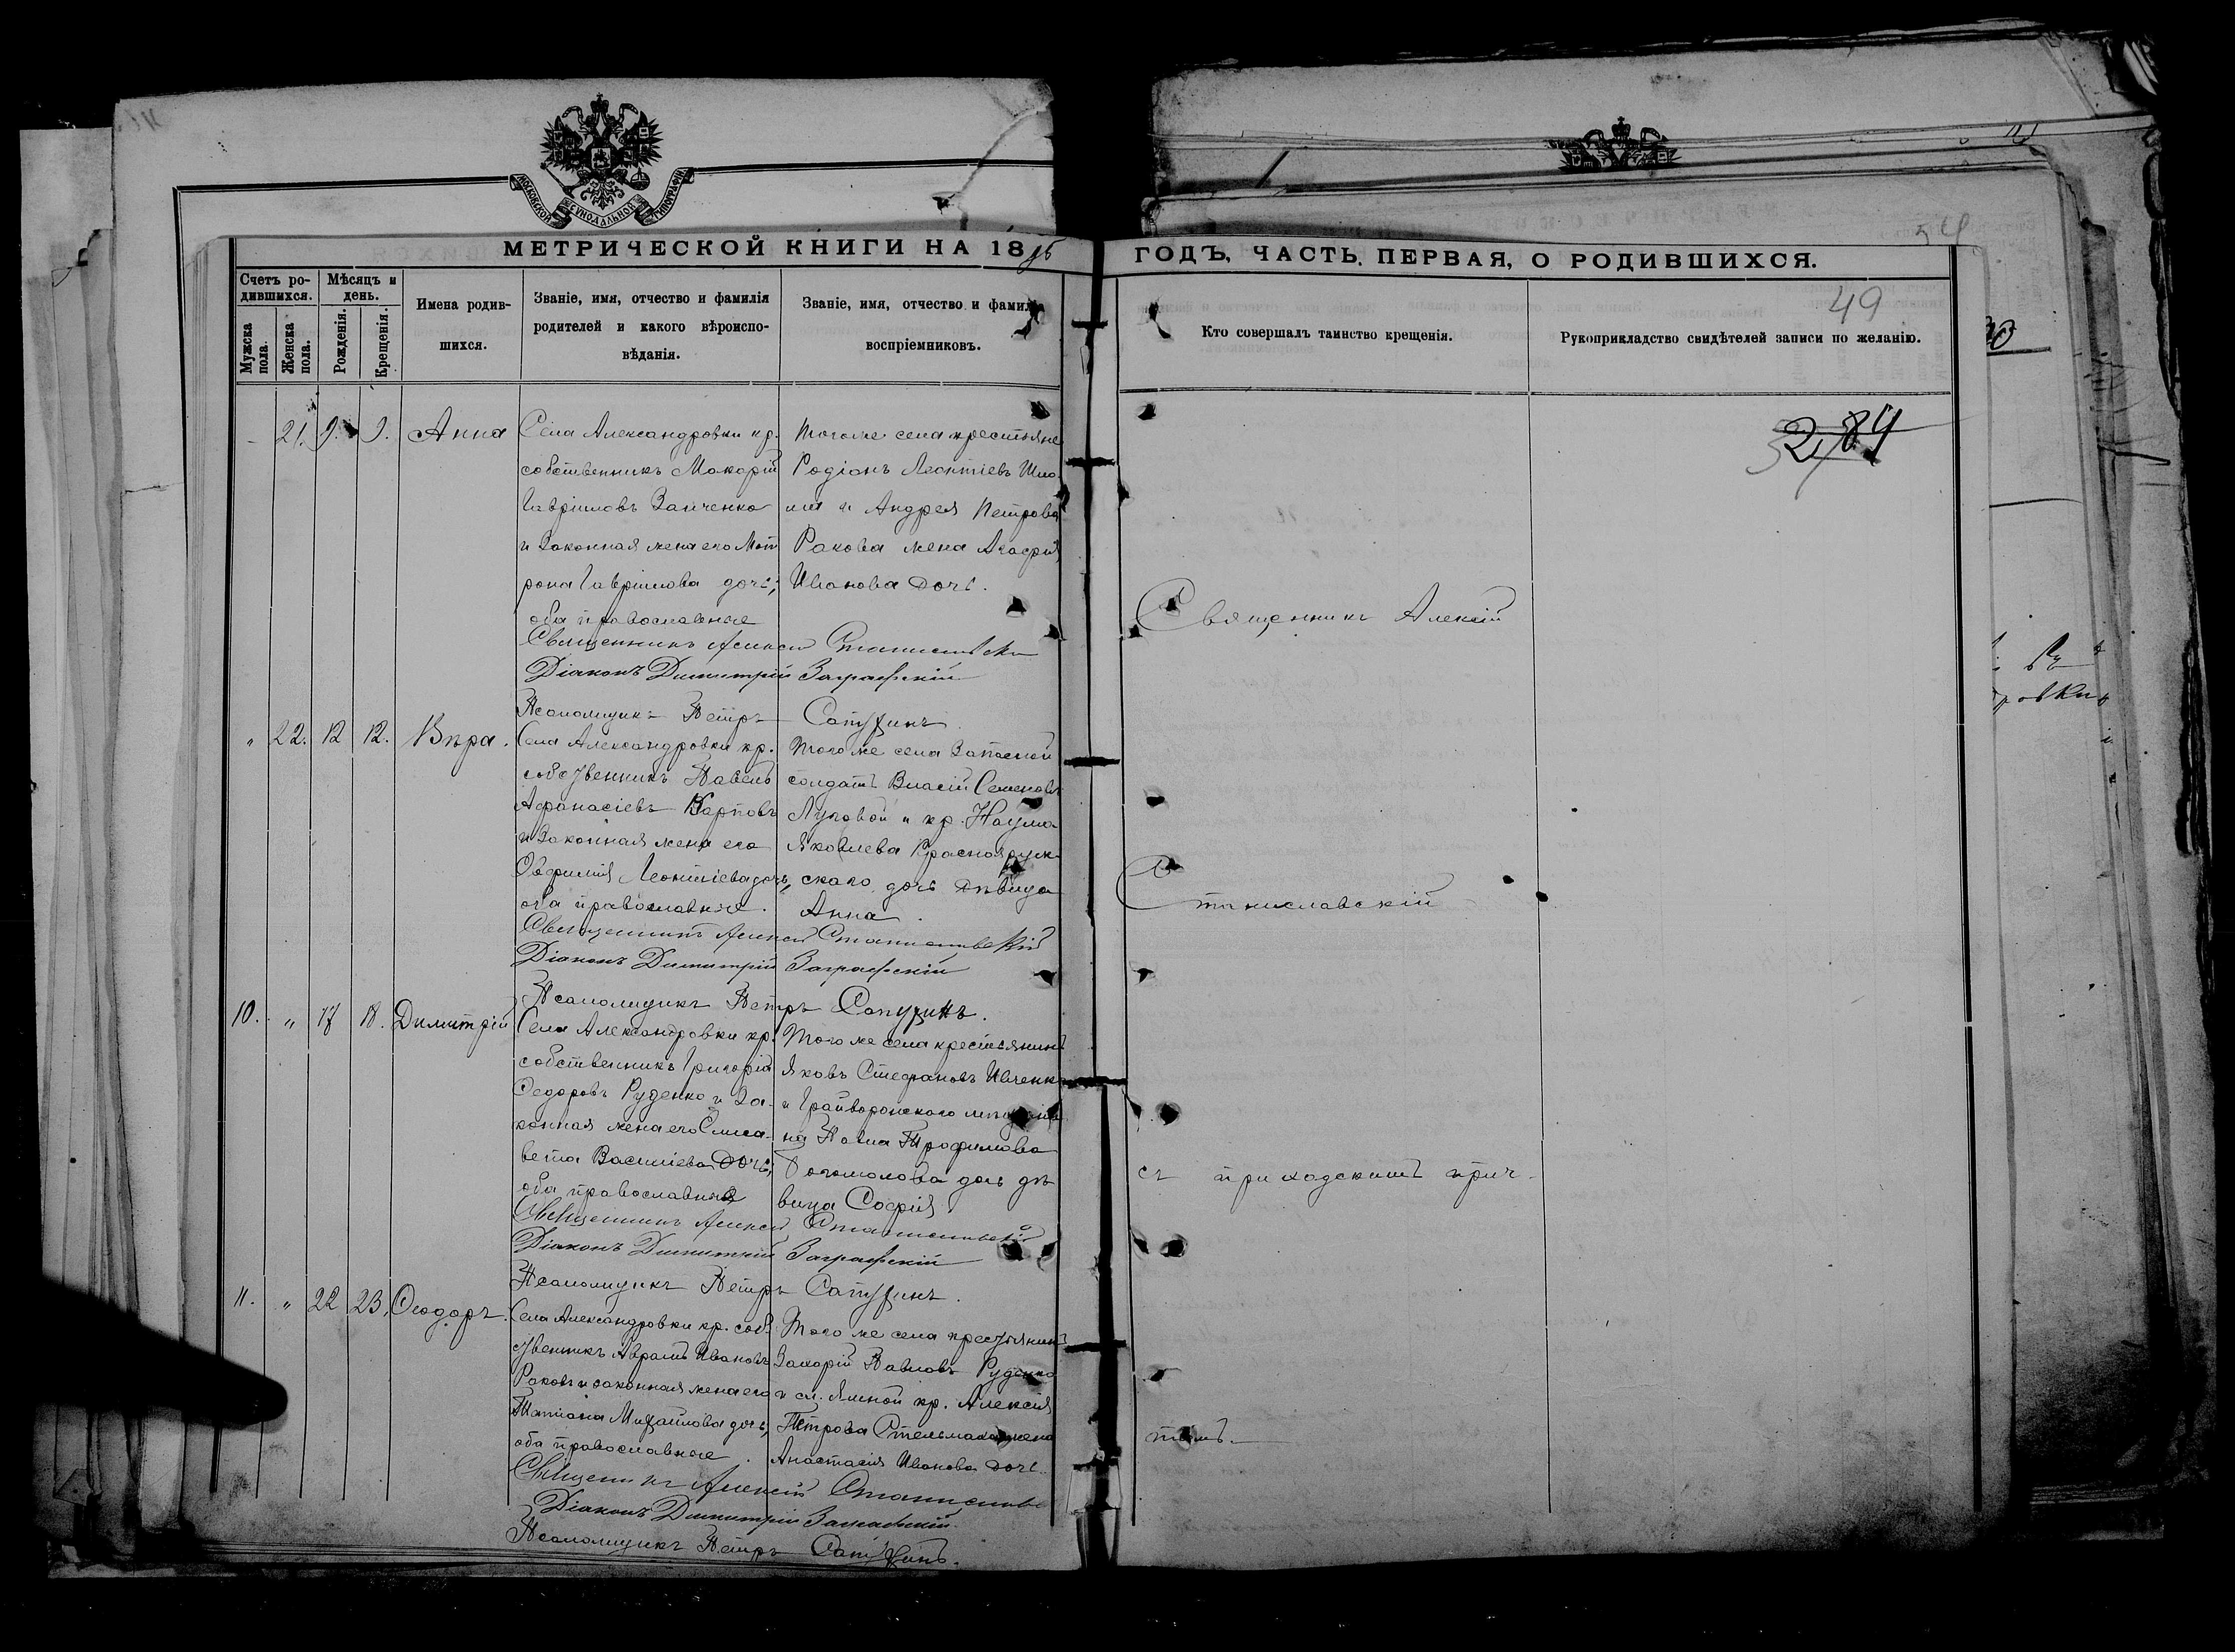 МОСКОВСКОЙ СѴНОДАЛЬНОЙ ТИПОГРАФІИ
МЕТРИЧЕСКОЙ КНИГИ НА 18
Счетъ ро-
дившихся.
Мужска пола.
Женска пола.
Мѣсяцъ и
день.
Рожденія.
Крещенія.
Имена родив-
шихся.
Званіе, имя, отчество и фамилія
родителей и какого вѣроиспо-
вѣданія.
Званіе, имя, отчество и фамилі
воспріемниковъ.
21. 9. 9. Анна
Села Александровки кр.
собственникъ Макарій
Гавріиловъ Зайченко
и законная жена его Мат
рона Гавріилова дочь;
оба православные
Тогоже села крестьяне
Родіонъ Леонтіевъ
и Андрея Петрова
Ракова жена Агафія
Иванова дочь.
Священникъ Алексій Станиславскі
Діаконъ Димитрій
Псаломщикъ Петръ
„ 22. 12 12. Вѣра.
Села Александровки кр.
собственникъ Павелъ
Афанасіевъ Карповъ
и законная жена его
Евфимія Леонтіева дочь,
оба православные.
Того же села запасной
солдатъ Власій Семеновъ
Луговой и кр. Наума
Яковлева Красноярук
скаго дочь дѣвица
Анна.
Священникъ Алексій Станиславскій
Діаконъ Димитрій
Псаломщикъ Петръ
10. „ 17 18. Димитрій
Села Александровки кр.
собственникъ Григорій
Феодоровъ Руденко и за-
конная жена его Елиса-
вета Василіева дочь,
оба православные
Того же села крестьянинъ
Яковъ Стефановъ Ивченк
и Грайворонскаго мѣщани
на Павла Трофимова
Богомолова дочь дѣ
вица Софія.
Священникъ Алексій Станиславскій
Діаконъ Димитрій
Псаломщикъ Петръ
11. „ 22 23. Феодоръ.
Села Александровки кр. соб
ственникъ Аврамъ Ивановъ
Раковъ и законная жена его
Татіана Михайлова дочь,
оба православные.
Того же села крестьянинъ
Захарій Павловъ Руденко
и сл. Ямной кр. Алексія
Петрова Стельмаха жена
Анастасія Иванова дочь.
Священникъ Алексій
Діаконъ Димитрій
Псаломщикъ Петръ
54
ГОДЪ, ЧАСТЬ ПЕРВАЯ, О РОДИВШИХСЯ.
49
Кто совершалъ таинство крещенія.
Рукоприкладство свидѣтелей записи по желанію.
Священникъ Алексій
Станиславскій
съ приходскимъ прич-
томъ.